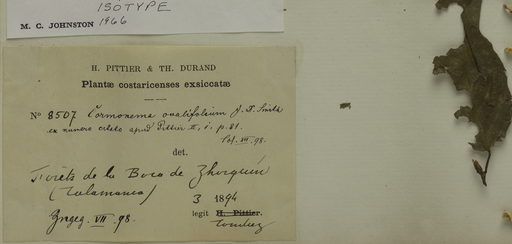 ISOTYPE
M. C. JOHNSTON 1966
H. PITTIER & TH. DURAND
Plantæ costaricenses exsiccatæ
Nº 8507 Cormonema ovalifolium J. D. Smith
ex numero citato apud Pittier II, p. 81.
VII. 98.
det.
Forêts de la Boca de Zhorquin
(Talamanca)
3 1894
legit H. Pittier.
Tonduz
VII. 98.